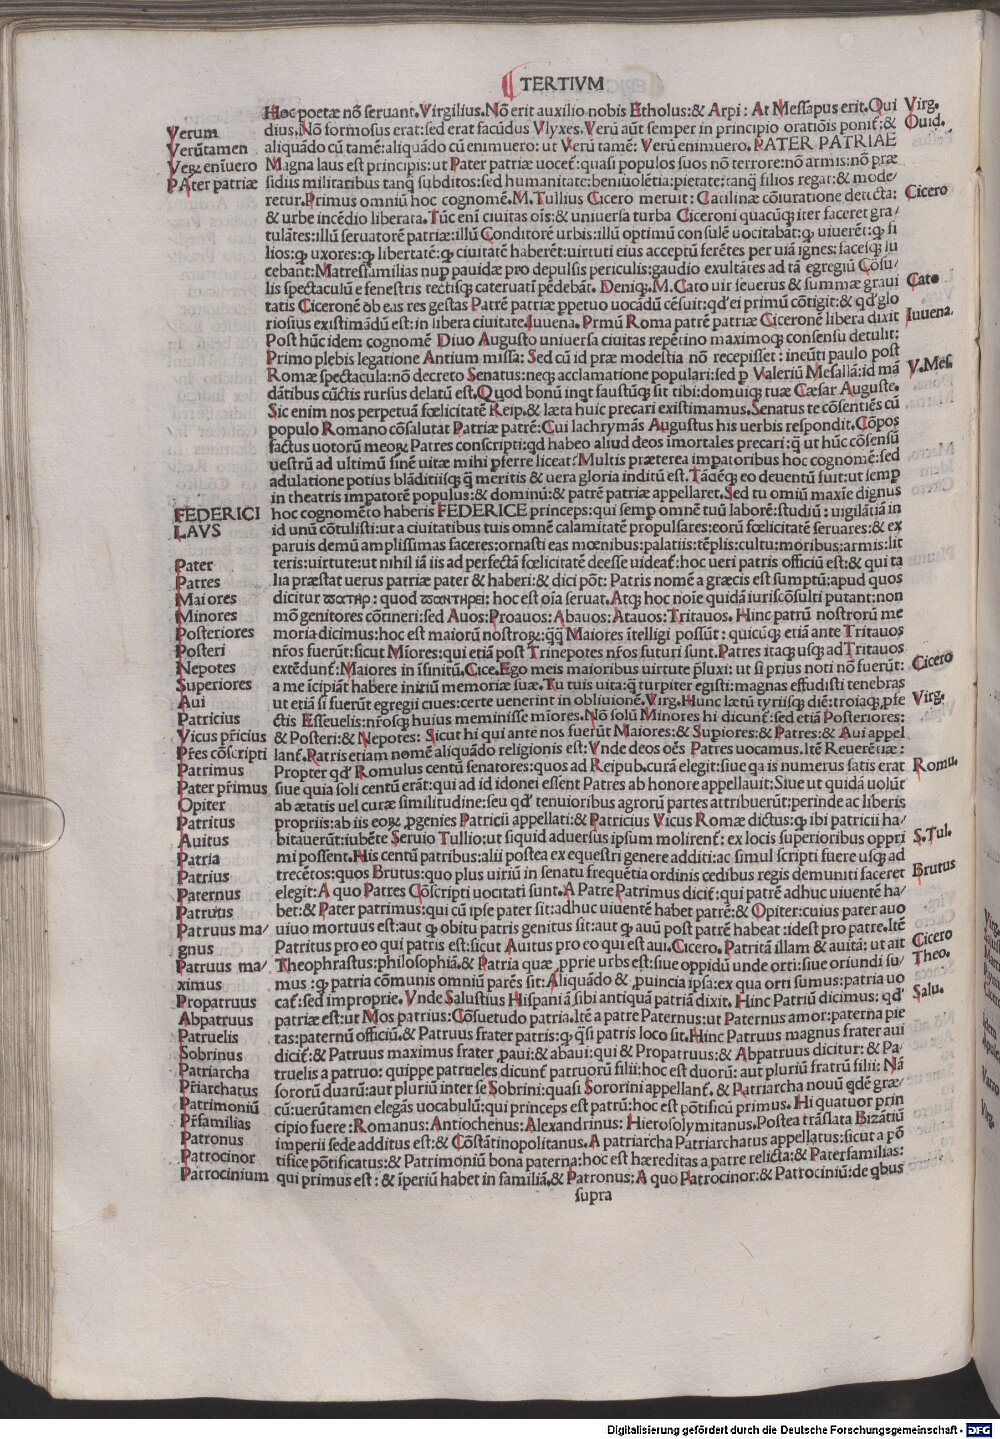 TERTIVM
Hoc poetæ nõ seruant. Virgilius. Nõ erit auxilio nobis Etholus: & Arpi: At Messapus erit. Oui
dius, Nõ formosus erat: sed erat facũdus Vlyxes. Verũ aũt semper in principio oratiõis ponit̃: &
aliquãdo cũ tamẽ: aliquãdo cũ enimuero: ut Verũ tamẽ: Verũ enimuero. PATER PATRIAE
Magna laus est principis: ut Pater patriæ uocet̃: quasi populos suos nõ terrore: nõ armis: nõ præ
sidus militaribus tanq̃ subditos: sed humanitate: beniuolẽtia: pietate: tanq̃ filios regat: & mode/
retur. Primus omniũ hoc cognomẽ. M. Tullius Cicero meruit: Catilinæ cõiuratione detecta:
& urbe incẽdio liberata. Tũc em̃ ciuitas oĩs: & uniuersa turba Ciceroni quacũq; iter faceret gra/
tulãtes: illũ seruatorẽ patriæ: illũ Conditorẽ urbis: illũ optimũ consulẽ uocitabãt: ꝙ uiuerẽt: ꝙ fi
lios: ꝙ uxores: ꝙ libertatẽ: ꝙ ciuitatẽ haberẽt: uirtuti eius acceptũ ferẽtes per uiã ignes: faceisq; ju
cebant: Matresfamilias nup̱ pauidæ pro depulsis periculis: gaudio exultãtes ad tã egregiũ Cõsu/
lis spectaculũ e fenestris tectisq; cateruati pẽdebãt. Deniq;. M. Cato uir seuerus & summæ graui
tatis Ciceronẽ ob eas res gestas Patrẽ patriæ p̱petuo uocãdũ cẽsuit: qđ ei primũ cõtigit: & qđ glo
riosius existimãdũ est: in libera ciuitate. Iuuena. Prmũ Roma patrẽ patriæ Ciceronẽ libera dixit
Post hũc idem cognomẽ Diuo Augusto uniuersa ciuitas repẽtino maximoq; consensu detulit:
Primo plebis legatione Antium missa: Sed cũ id præ modestia nõ recepisset: ineũti paulo post
Romæ spectacula: nõ decreto Senatus: neq; acclamatione populari: sed p̱ Valeriũ Mesallã: id mã
dãtibus cũctis rursus delatũ est. Quod bonũ inqt faustũq; sit tibi: domuiq; tuæ Cæsar Auguste.
Sic enim nos perpetuã fœlicitatẽ Reip. & læta huic precari existimamus. Senatus te cõsentiẽs cũ
populo Romano cõsalutat Patriæ patrẽ: Cui lachrymãs Augustus his uerbis respondit. Cõpos
factus uotorũ meoꝝ Patres conscripti: qd habeo aliud deos imortales precari: q̃ ut hũc cõsensũ
uestrũ ad ultimũ finẽ uitæ mihi p̱ferre liceat: Multis præterea imp̱atoribus hoc cognomẽ: sed
adulatione potius blãditiisq; q̃ meritis & uera gloria inditũ est. Tãdẽq; eo deuentũ fuit: ut semp̱
in theatris impatorẽ populus: & dominũ: & patrẽ patriæ appellaret. Sed tu omiũ maxĩe dignus
hoc cognomẽto haberis FEDERICE princeps: qui semp̱ omnẽ tuũ laborẽ: studiũ: uigilãtiã in
id unũ cõtulisti: ut a ciuitatibus tuis omnẽ calamitatẽ propulsares: eorũ fœlicitatẽ seruares: & ex
paruis demũ amplissimas faceres: ornasti eas mœnibus: palatiis: tẽplis: cultu: moribus: armis: lit
teris: uirtute: ut nihil iã iis ad perfectã fœlicitatẽ deesse uideat̃: hoc ueri patris officiũ est: & qui ta
lia præstat uerus patriæ pater & haberi: & dici põt: Patris nomẽ a græcis est sumptũ: apud quos
dicitur ϖατηρ: quod ϖαντηρει: hoc est oĩa seruat. Atq; hoc noĩe quidã iuriscõsulti putant: non
mõ genitores cõtineri: sed Auos: Proauos: Abauos: Atauos: Tritauos. Hinc patrũ nostrorũ me
moria dicimus: hoc est maiorũ nostroꝝ: q̃q̃ Maiores ĩtelligi possũt: quicũq; etiã ante Tritauos
nr̃os fuerũt: sicut Mĩores: qui etiã post Trinepotes nr̃os futuri sunt. Patres itaq; usq; ad Tritauos
extẽdunt̃: Maiores in ĩfinitũ. Cice. Ego meis maioribus uirtute p̃luxi: ut si prius noti nõ fuerũt:
a me ĩcipiãt habere initiũ memoriæ suæ. Tu tuis uita: q̃ turpiter egisti: magnas effudisti tenebras
ut etiã si fuerũt egregii ciues: certe uenerint in obliuionẽ. Virg. Hunc lætũ tyriisq; diẽ: troiaq; p̱fe
ctis Esseuelis: nr̃osq; huius meminisse mĩores. Nõ solũ Minores hi dicunt̃: sed etiã Posteriores:
& Posteri: & Nepotes: Sicut hi qui ante nos fuerũt Maiores: & Sup̱iores: & Patres: & Aui appel
lant̃. Patris etiam nomẽ aliquãdo religionis est: Vnde deos oẽs Patres uocamus. Itẽ Reuerẽtiæ:
Propter qđ Romulus centũ senatores: quos ad Reipub. curã elegit: siue qa is numerus satis erat
siue quia soli centũ erãt: qui ad id idonei essent Patres ab honore appellauit: Siue ut quidã uolũt
ab ætatis uel curæ similitudine: seu qđ tenuioribus agrorũ partes attribuerũt: perinde ac liberis
propriis: ab iis eoꝝ p̱genies Patricii appellati: & Patricius Vicus Romæ dictus: ꝙ ibi patricii ha/
bitauerũt: iubẽte Seruio Tullio: ut siquid aduersus ipsum molirent̃: ex locis superioribus oppri
mi possent. His centũ patribus: alii postea ex equestri genere additi: ac simul scripti fuere usq; ad
trecẽtos: quos Brutus: quo plus uiriũ in senatu frequẽtia ordinis cedibus regis demuniti faceret
elegit: A quo Patres Cõscripti uocitati sunt. A Patre Patrimus dicit̃: qui patrẽ adhuc uiuentẽ ha/
bet: & Pater patrimus: qui cũ ipse pater sit: adhuc uiuentẽ habet patrẽ: & Opiter: cuius pater auo
uiuo mortuus est: aut ꝙ obitu patris genitus sit: aut ꝙ auũ post patrẽ habeat: idest pro patre. Itẽ
Patritus pro eo qui patris est: sicut Auitus pro eo qui est aui. Cicero. Patritã illam & auitã: ut ait
Theophrastus: philosophiã. & Patria quæ p̱prie urbs est: siue oppidũ unde orti: siue oriundi su/
mus: ꝙ patria cõmunis omniũ parẽs sit: Aliquãdo & p̱uincia ipsa: ex qua orti sumus: patria uo
cat̃: sed improprie. Vnde Salustius Hispaniã sibi antiquã patriã dixit. Hinc Patriũ dicimus: qđ
patriæ est: ut Mos patrius: Cõsuetudo patria. Itẽ a patre Paternus: ut Paternus amor: paterna pie
tas: paternũ officiũ. & Patruus frater patris: ꝙ q̃si patris loco sit. Hinc Patruus magnus frater aui
dicit̃: & Patruus maximus frater p̱aui: & abaui: qui & Propatruus: & Abpatruus dicitur: & Pa/
truelis a patruo: quippe patrueles dicunt̃ patruorũ filii: hoc est duorũ: aut pluriũ fratrũ filii: Nã
sororũ duarũ: aut pluriũ inter se Sobrini: quasi Sororini appellant̃. & Patriarcha nouũ qdẽ græ/
cũ: uerũtamen elegãs uocabulũ: qui princeps est patrũ: hoc est põtificũ primus. Hi quatuor prin
cipio fuere: Romanus: Antiochenus: Alexandrinus: Hierosolymitanus. Postea trãslata Bizãtiũ
imperii sede additus est: & Cõstãtinopolitanus. A patriarcha Patriarchatus appellatus: sicut a põ
tifice põtificatus: & Patrimoniũ bona paterna: hoc est hæreditas a patre relicta: & Paterfamilias:
qui primus est: & ĩperiũ habet in familiã. & Patronus: A quo Patrocinor: & Patrociniũ: de qbus
supra
Verum
Verũtamen
Veꝝ enĩuero
PAter patriæ
FEDERICI
LAVS
Pater
Patres
Maiores
Minores
Posteriores
Posteri
Nepotes
Superiores
Aui
Patricius
Vicus pr̃icius
Pr̃es cõscripti
Patrimus
Pater pr̃imus
Opiter
Patritus
Auitus
Patria
Patrius
Paternus
Patruus
Patruus ma/
gnus
Patruus ma/
ximus
Propatruus
Abpatruus
Patruelis
Sobrinus
Patriarcha
Pr̃iarchatus
Patrimoniũ
Pr̃familias
Patronus
Patrocinor
Patrocinium
Virg.
Ouid.
Cicero
Cato
Iuuena.
V. Mes.
Cicero
Virg.
Romu.
S. Tul.
Brutus
Cicero
Theo.
Salu.
Digitalisierung gefördert durch die Deutsche Forschungsgemeinschaft - DFG